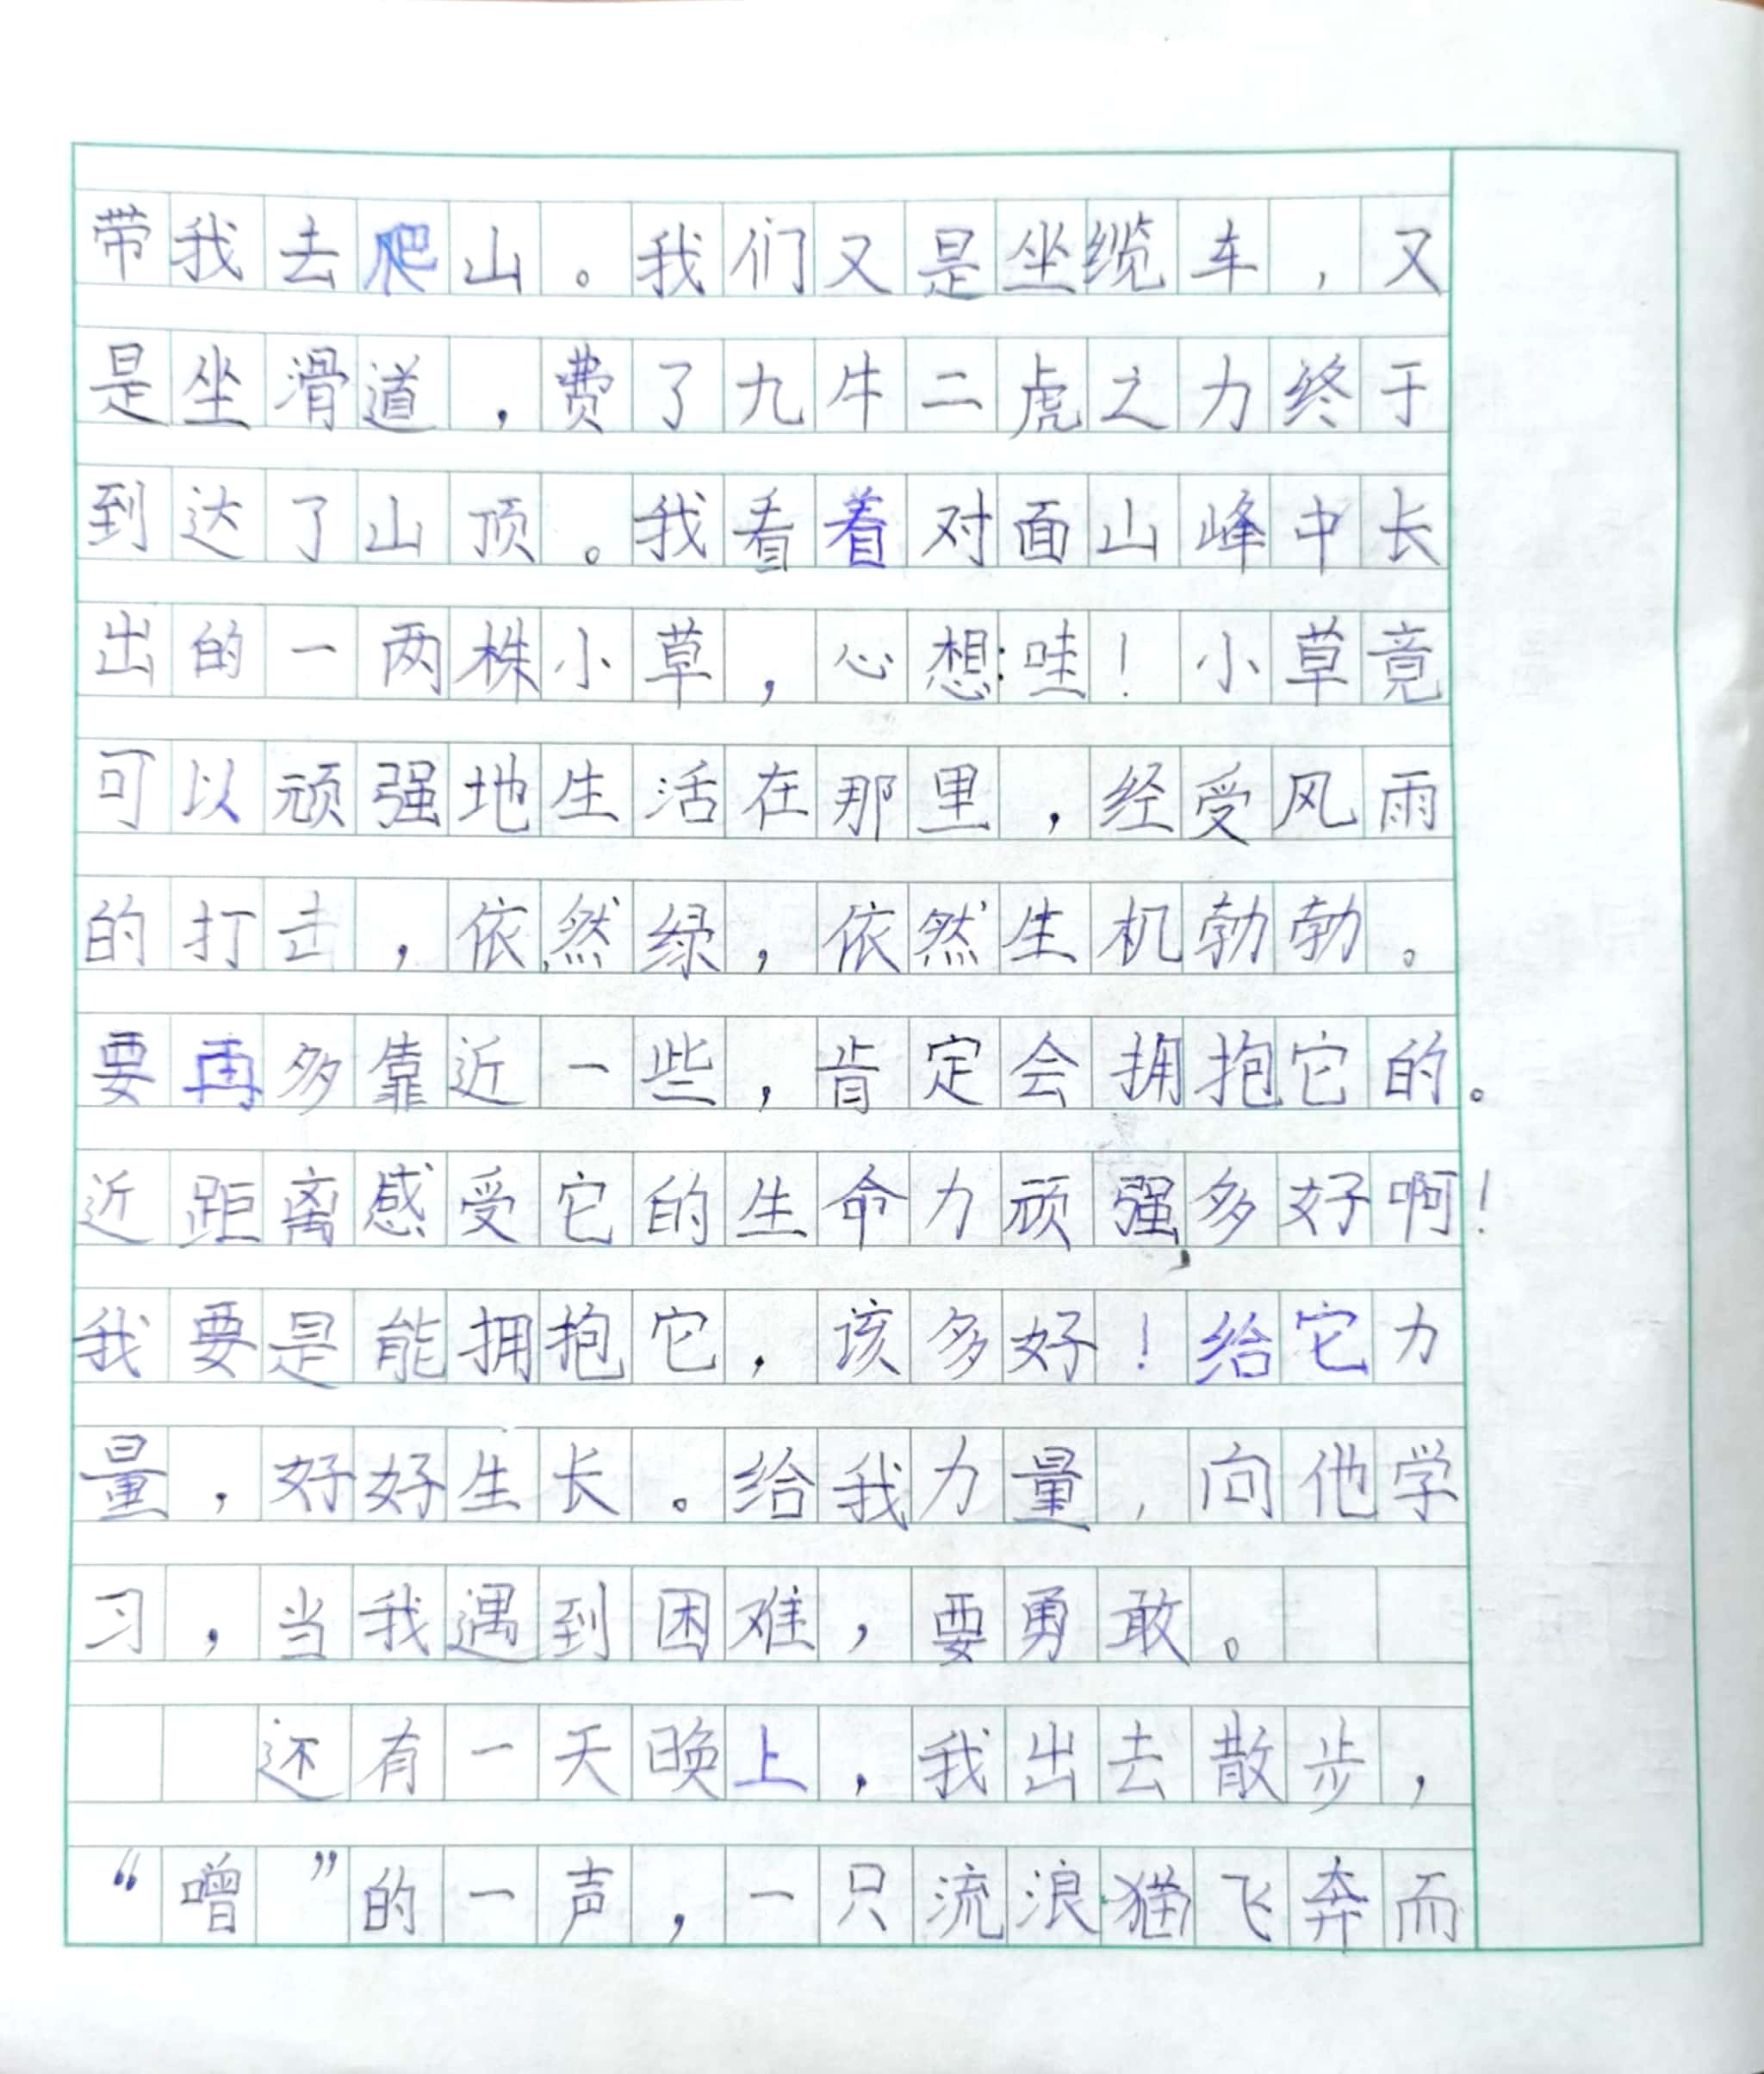 带我去爬山。我们又是坐缆车，又
是坐滑道，费了九牛二虎之力终于
到达了山顶。我看着对面山峰中长
出的一两株小草，心想：哇！小草竟
可以顽强地生活在那里，经受风雨
的打击，依然绿，依然生机勃勃。
要再多靠近一些，肯定会拥抱它的。
近距离感受它的生命力顽强，多好啊！
我要是能拥抱它，该多好！给它力
量，好好生长。给我力量，向他学
习，当我遇到困难，要勇敢。
还有一天晚上，我出去散步，
“噌”的一声，一只流浪猫飞奔而